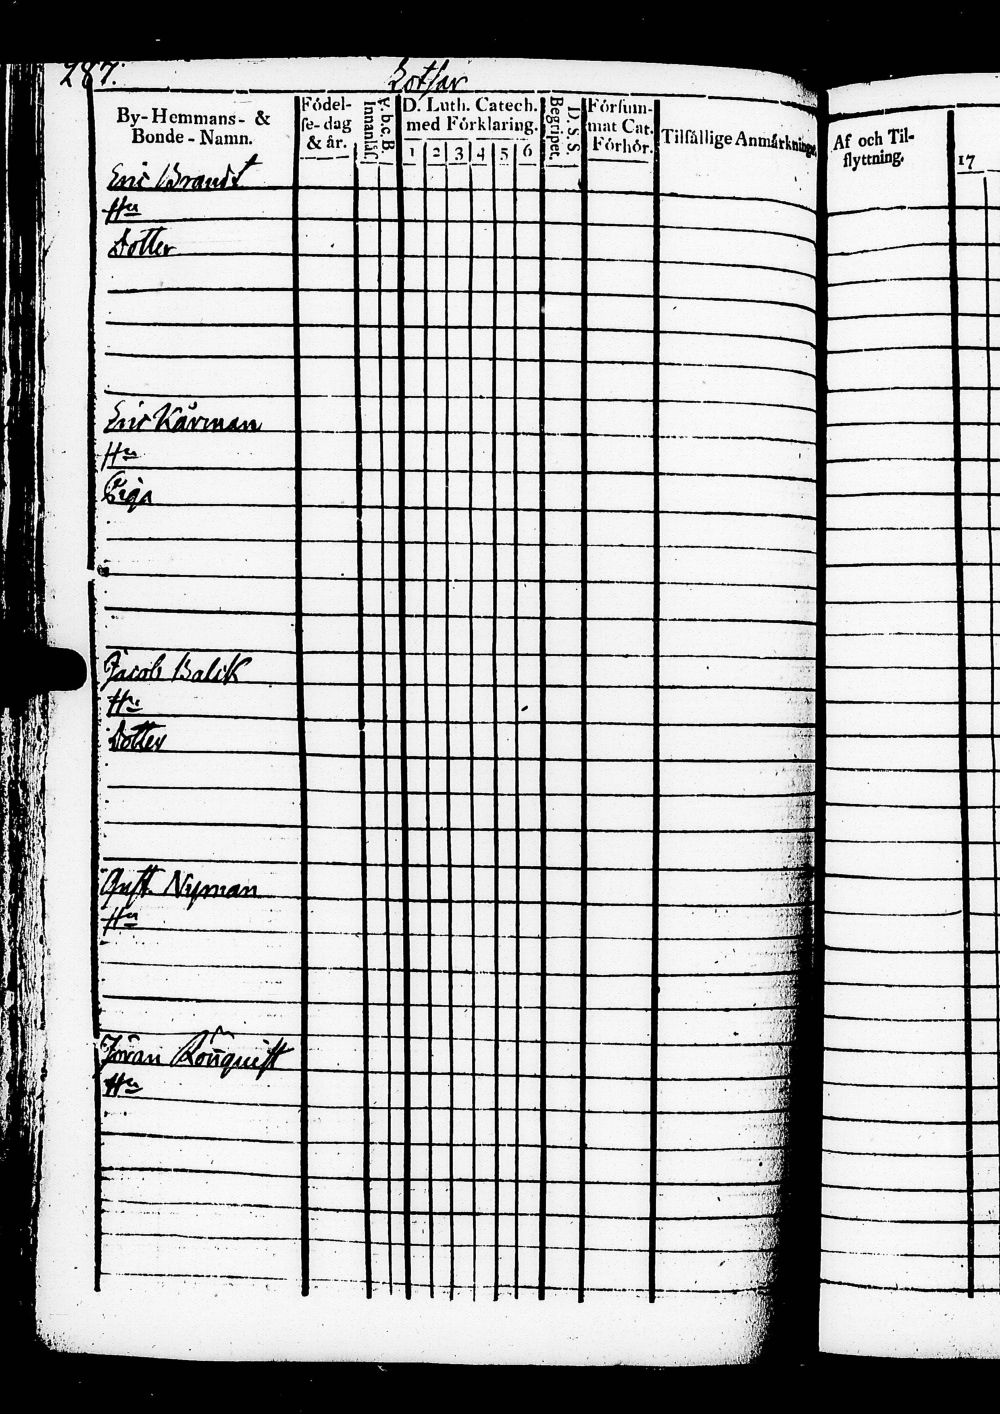 287.
Lotsar
By-Hemmans- &
Bonde-Namn.
Födel-
se-dag
& år.
Innanläs.
A.b.c.B.
D. Luth. Catech.
med Förklaring.
1 2 3 4 5 6
Begripet.
D. S. S.
Försum-
mat Cat.
Förhör.
Tilfällige Anmärkninge
Af och Til-
flyttning.
17
Eric Brandt
Hu
Dotter
Eric Kårman
Hu
Piga
Jacob Balck
Hu
Dotter
Gust. Nyman
Hu
Jöran Rönquist
Hu